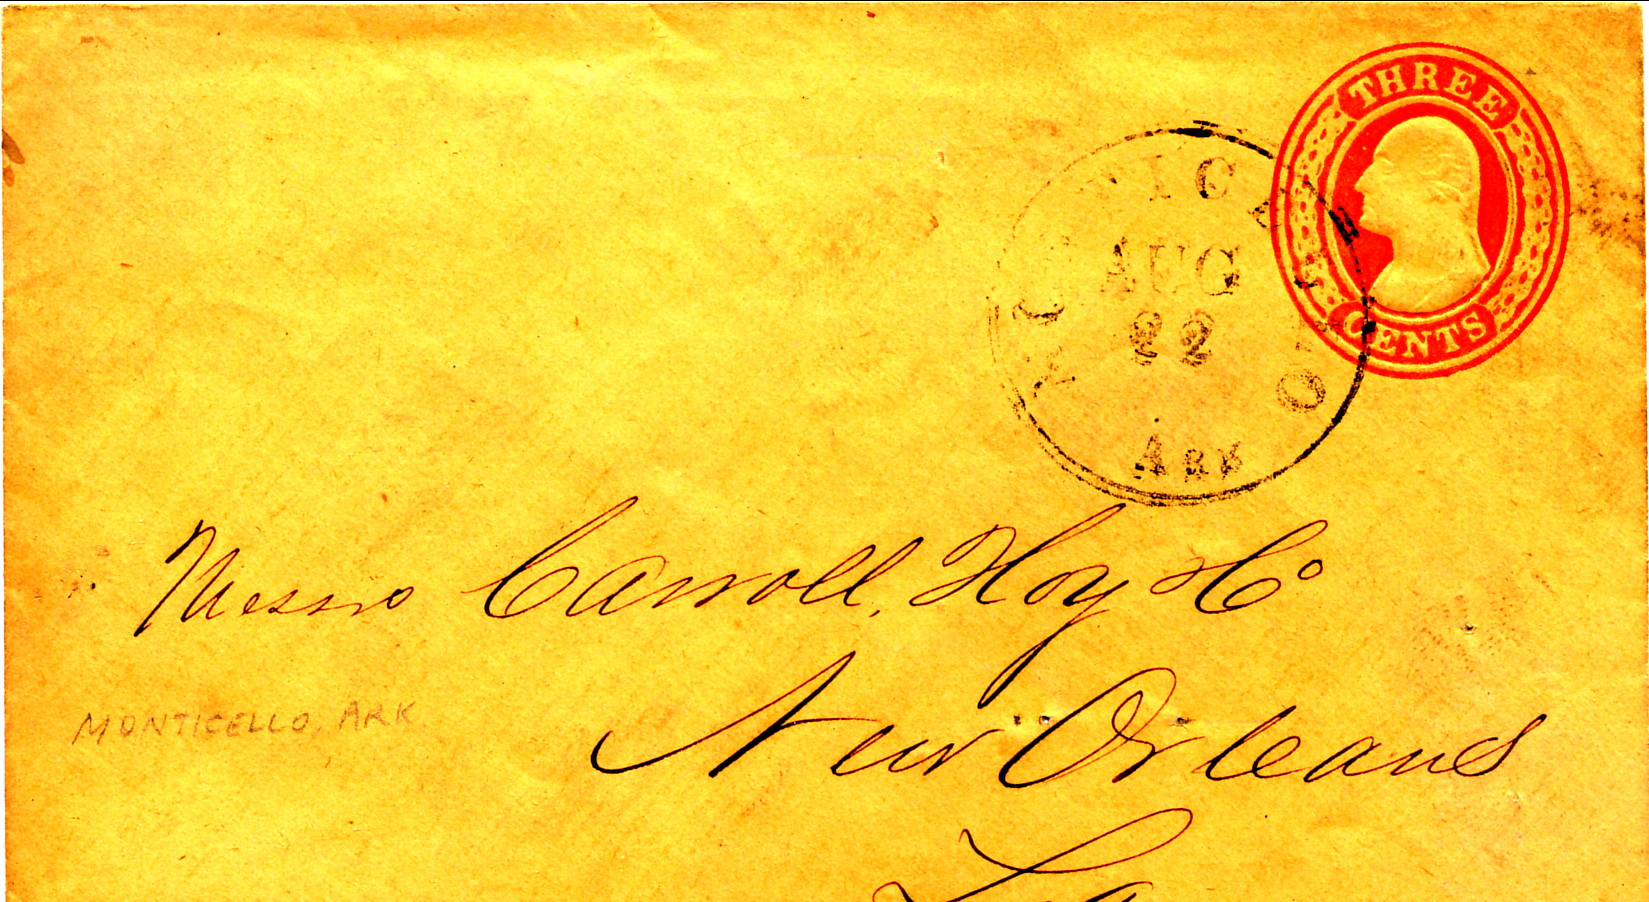 THREE
CENTS
AUG
22
ARK
Messrs Carroll, Hoy & Co
New Orleans
La
MONTICELLO, ARK